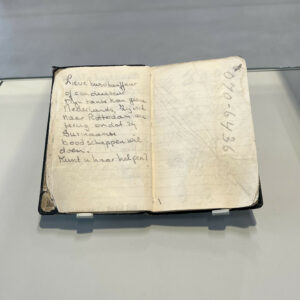 Lieve buschauffeur
of conducteur
Mijn tante kan geen
Nederlands. Zij wil
naar Rotterdam en
terug omdat zij
Surinaamse
boodschappen wil
doen.
Kunt u haar helpen?
070-6436